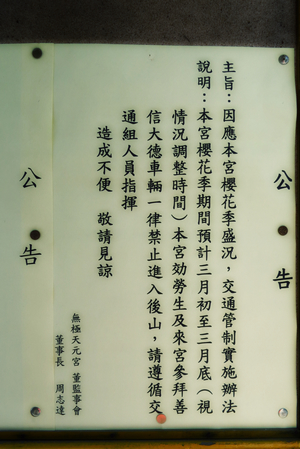 公告
主旨：因應本宮櫻花季盛況，交通管制實施辦法
說明：本宮櫻花季期間預計三月初至三月底（視
情況調整時間）本宮効勞生及來宮參拜善
信大德車輛一律禁止進入後山，請遵循交
通組人員指揮
造成不便　敬請見諒
無極天元宮　董監事會
董事長　周志達
公告